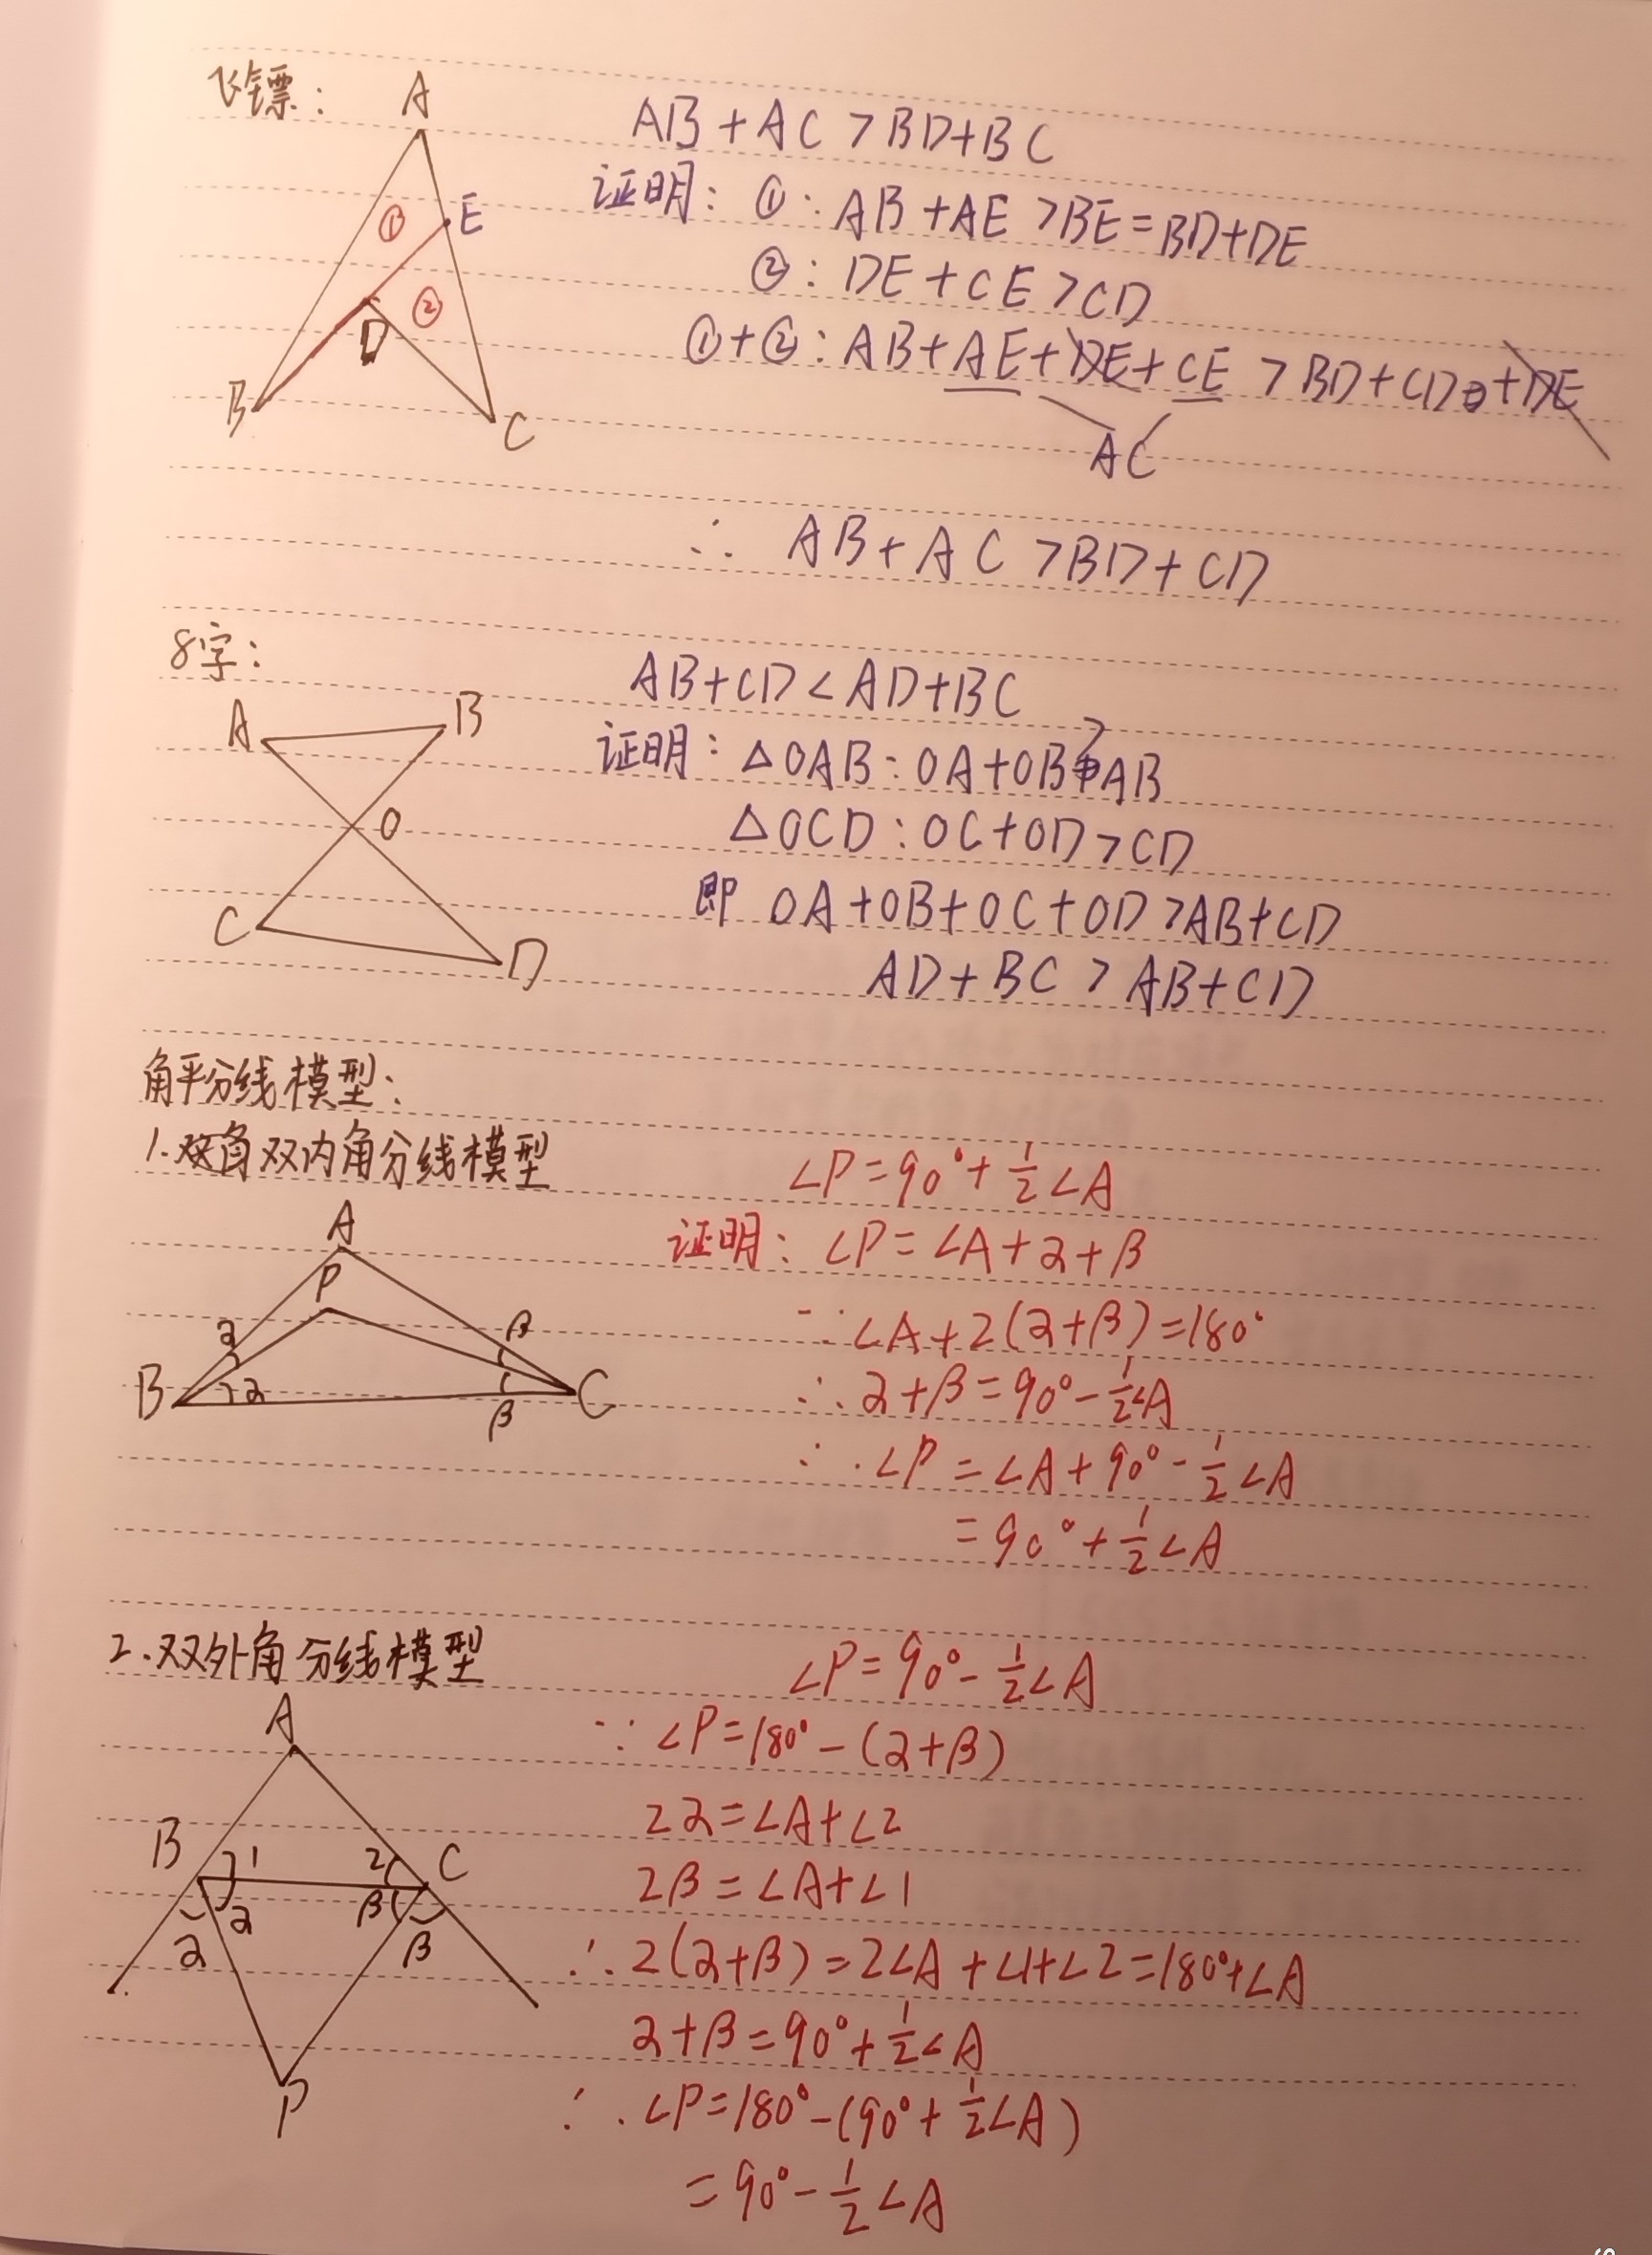 飞镖:
A
E
①
②
D
B
C
AB+AC>BD+BC
证明: ①: AB+AE>BE=BD+DE
②: DE+CE>CD
①+②: AB+AE+DE+CE>BD+CD+DE
AC
∴ AB+AC>BD+CD
8字:
A
B
O
C
D
AB+CD<AD+BC
证明: △OAB: OA+OB>AB
△OCD: OC+OD>CD
即 OA+OB+OC+OD>AB+CD
AD+BC>AB+CD
角平分线模型:
1.双内角分线模型
A
P
α
β
B
α
β
C
∠P=90°+1/2∠A
证明: ∠P=∠A+α+β
∵∠A+2(α+β)=180°
∴α+β=90°-1/2∠A
∴∠P=∠A+90°-1/2∠A
=90°+1/2∠A
2.双外角分线模型
A
B
1
2
C
α
β
α
β
P
∠P=90°-1/2∠A
∵∠P=180°-(α+β)
2α=∠A+∠2
2β=∠A+∠1
∴2(α+β)=2∠A+∠1+∠2=180°+∠A
α+β=90°+1/2∠A
∴∠P=180°-(90°+1/2∠A)
=90°-1/2∠A